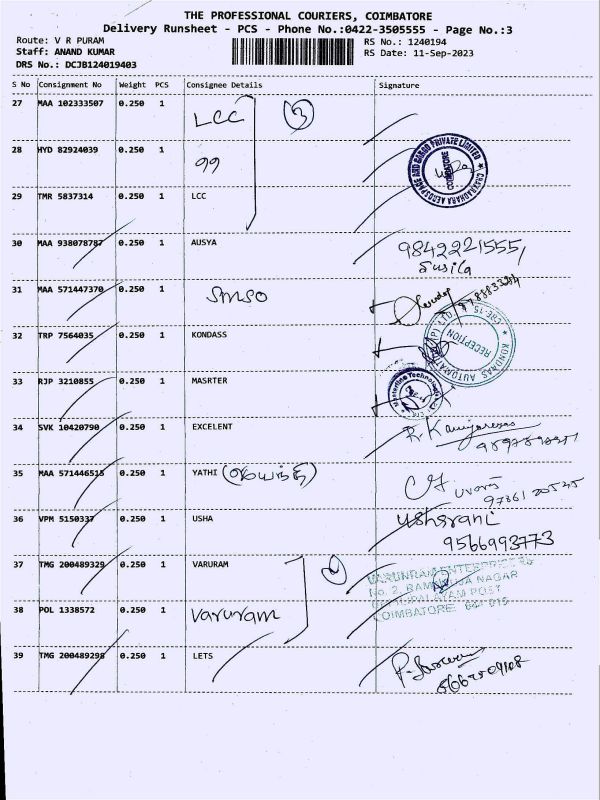 THE PROFESSIONAL COURIERS, COIMBATORE
Delivery Runsheet - PCS - Phone No.:0422-3505555 - Page No.:3
Route: V R PURAM
Staff: ANAND KUMAR
DRS No.: DCJB124019403
RS No.: 1240194
RS Date: 11-Sep-2023
S No Consignment No Weight PCS Consignee Details Signature
27 MAA 102333507 0.250 1 LCC 3
28 HYD 82924039 0.250 1 99
CHAKRADHARA AEROSPACE AND CARGO PRIVATE LIMITED
COIMBATORE
29 TMR 5837314 0.250 1 LCC
30 MAA 938078787 0.250 1 AUSYA 9842221555,
Susila
31 MAA 571447370 0.250 1 SMSO
32 TRP 7564035 0.250 1 KONDASS
RECEPTION
CBE-15
33 RJP 3210855 0.250 1 MASRTER
34 SVK 10420790 0.250 1 EXCELENT
35 MAA 571446515 0.250 1 YATHI
36 VPM 5150337 0.250 1 USHA Usharani
9566993773
37 TMG 200489329 0.250 1 VARURAM
VARUNRAM ENTERPRISES
38 POL 1338572 0.250 1 Varuram
COIMBATORE
39 TMG 200489298 0.250 1 LETS